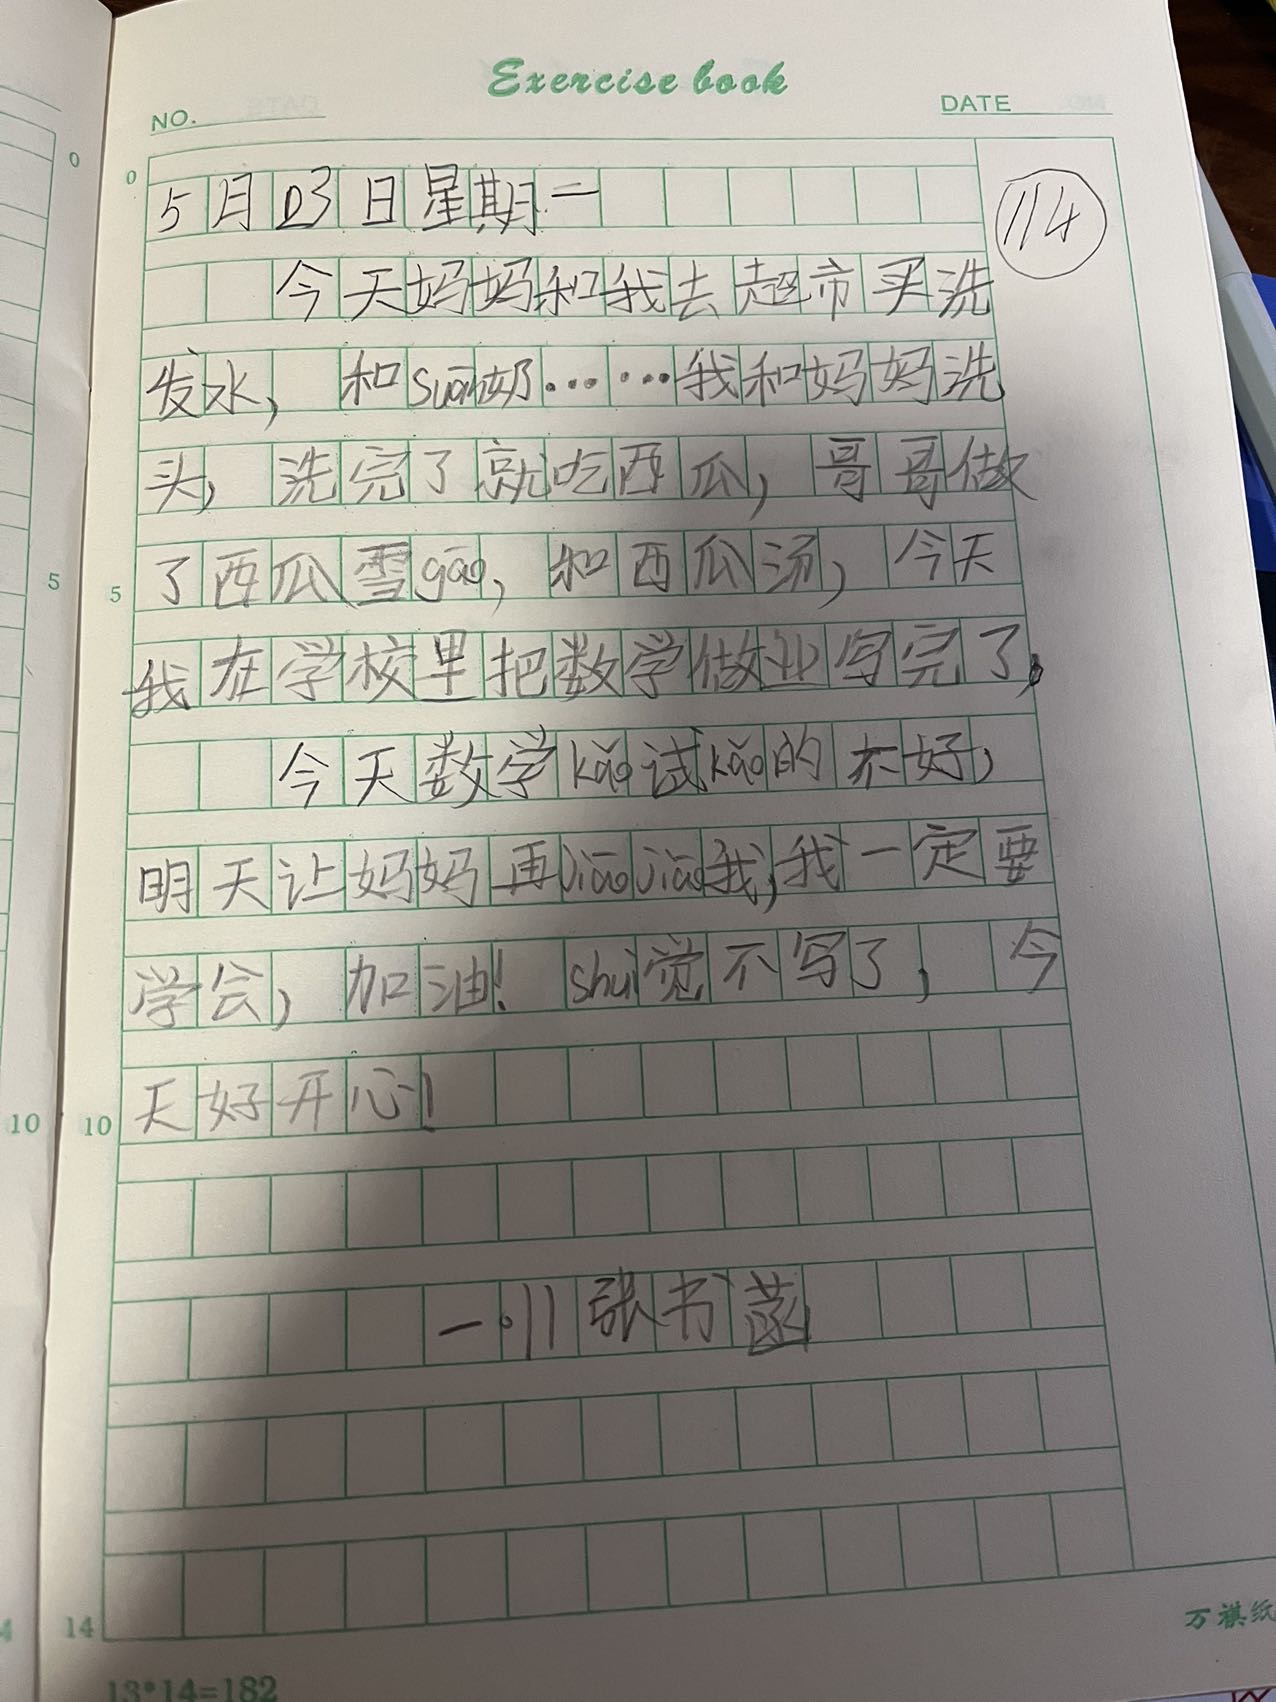 Exercise book
NO.
DATE
5月03日星期一
114
今天妈妈和我去超市买洗
发水，和suān奶……我和妈妈洗
头，洗完了就吃西瓜，哥哥做
了西瓜雪gāo，和西瓜汤，今天
我在学校里把数学做业写完了，
今天数学kǎo试kǎo的不好，
明天让妈妈再jiāojiāo我，我一定要
学会，加油！shuì觉不写了，今
天好开心！
一.11张书菡
0
0
5
5
10
10
14
4
13*14=182
万祺纸